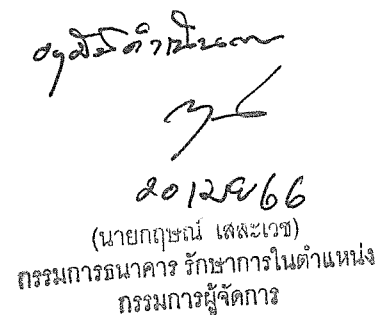 อนุมัติดำเนินการ
20 เมย 66
(นายกฤษณ์ เสสะเวช)
กรรมการธนาคาร รักษาการในตำแหน่ง
กรรมการผู้จัดการ